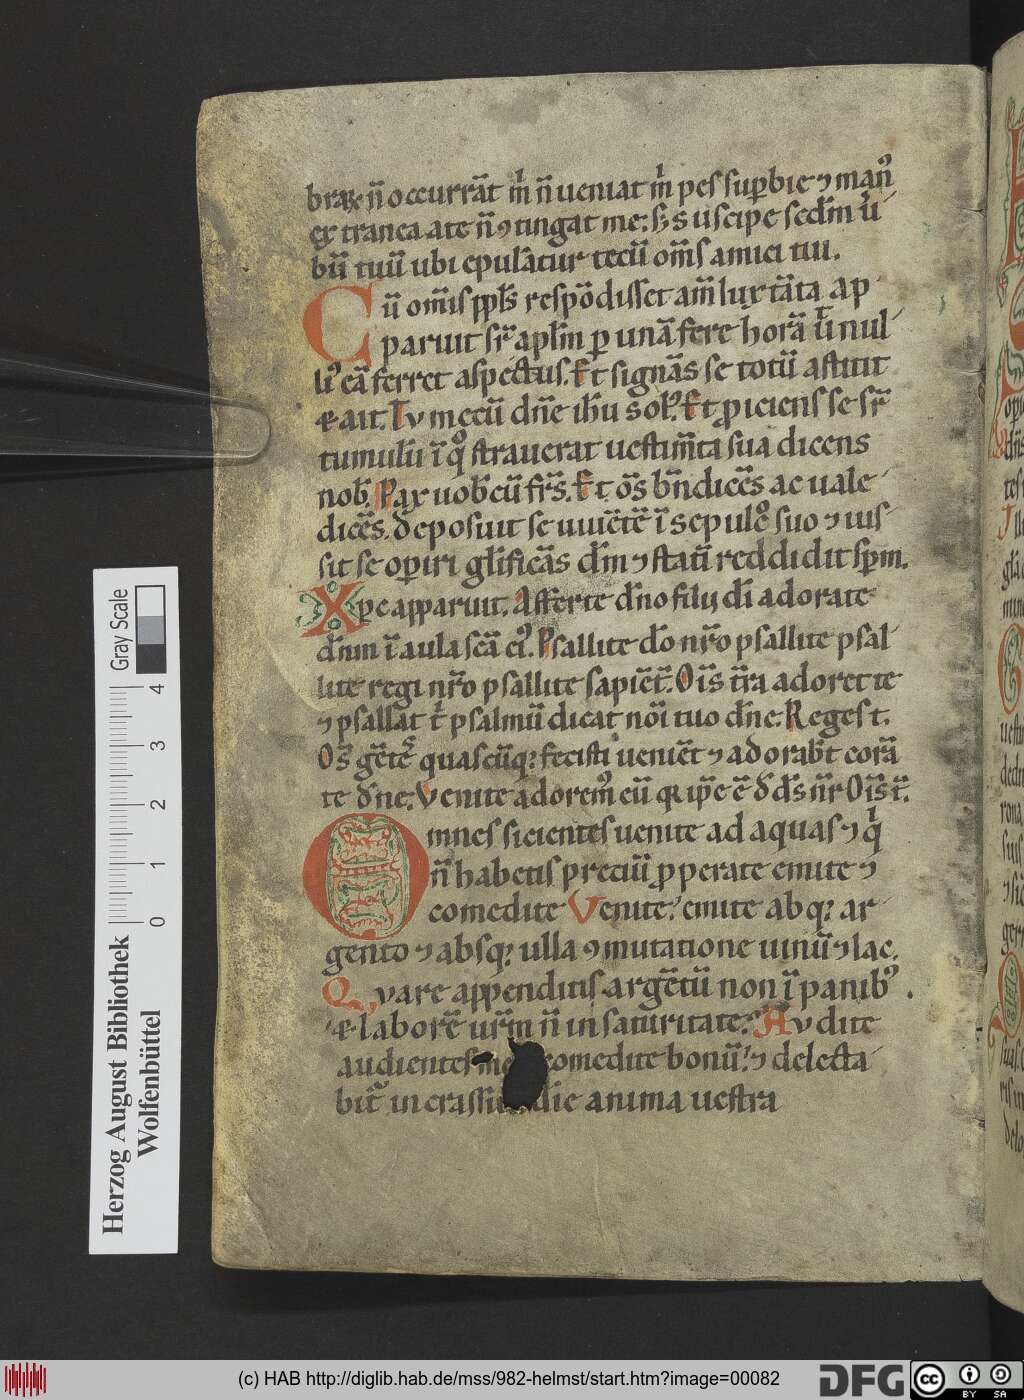 brarum n̄ occurrāt m̄ n̄ ueniat m̄ pes suꝑbie ⁊ manꝰ
extranea a te n̄ ꝯtingat me: S; suscipe secd̄m ū
bū tuū ubi epulātur tecū om̄s amici tui.
Cū om̄is ppl̄s respōdisset am̄ lux tāta ap
paruit sr̄ apl̄m ꝑ unā fere horā ut nul
lꝰ eā ferret aspectus. Et signās se totū astitit
& ait. Tu mecū dn̄e ih̄u solꝰ. Et ꝓiciens se sr̄
tumulū ī qͦ strauerat uestim̄ta sua dicens
nob̄. Pax uob̄ cū fr̄s. Et ōs bn̄dicēs ac uale
dicēs. deposuit se uiuētē ī sepulcͦ suo ⁊ ius
sit se oꝑiri gl̄ificās dm̄ ⁊ statī reddidit sp̄m.
Xpe apparuit. Afferte dn̄o filij dī adorate
dn̄m ī aula scā eiꝰ. Psallite dō nr̄o psallite psal
lite regi nr̄o psallite sapiēt̄. Oīs t̄ra adoret te
⁊ psallat t̄ psalmū dicat nōi tuo dn̄e. Reges t.
Os̄ gētes quascūq; fecisti ueniēt ⁊ adorab̄t corā
te dn̄e: Venite adoremꝰ eū qr ip̄e ē d ds̄ nr̄ Oīs t̄.
Omnes sicientes uenite ad aquas ⁊ q̇
n̄ habetis preciū ꝓperate emite ⁊
comedite Venite: emite absq; ar
gento ⁊ absq; ulla ꝯmutatione uinū ⁊ lac.
Quare appenditis argētū non ī panibꝰ.
& laborē ur̄m n̄ in saturitate: Audite
audientes me comedite bonū: ⁊ delecta
bit̄ in crassi die anima uestra
Herzog August Bibliothek
Wolfenbüttel
Gray Scale
0 1 2 3 4
(c) HAB http://diglib.hab.de/mss/982-helmst/start.htm?image=00082
DFG
cc BY SA